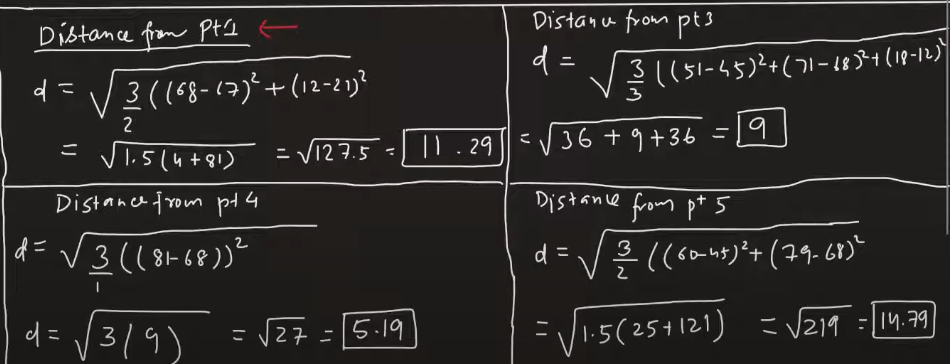 Distance from pt1 ←
d = √(3/2 ((68-67)² + (12-21)²
= √1.5(4+81) = √127.5 = 11.29
Distance from pt3
d = √(3/3 ((51-45)²+(71-68)²+(18-12)²
= √36 + 9 + 36 = 9
Distance from pt 4
d = √(3/1 ((81-68))²
d = √3(9) = √27 = 5.19
Distance from pt 5
d = √(3/2 ((60-45)²+(79-68)²
= √1.5(25+121) = √219 = 14.79